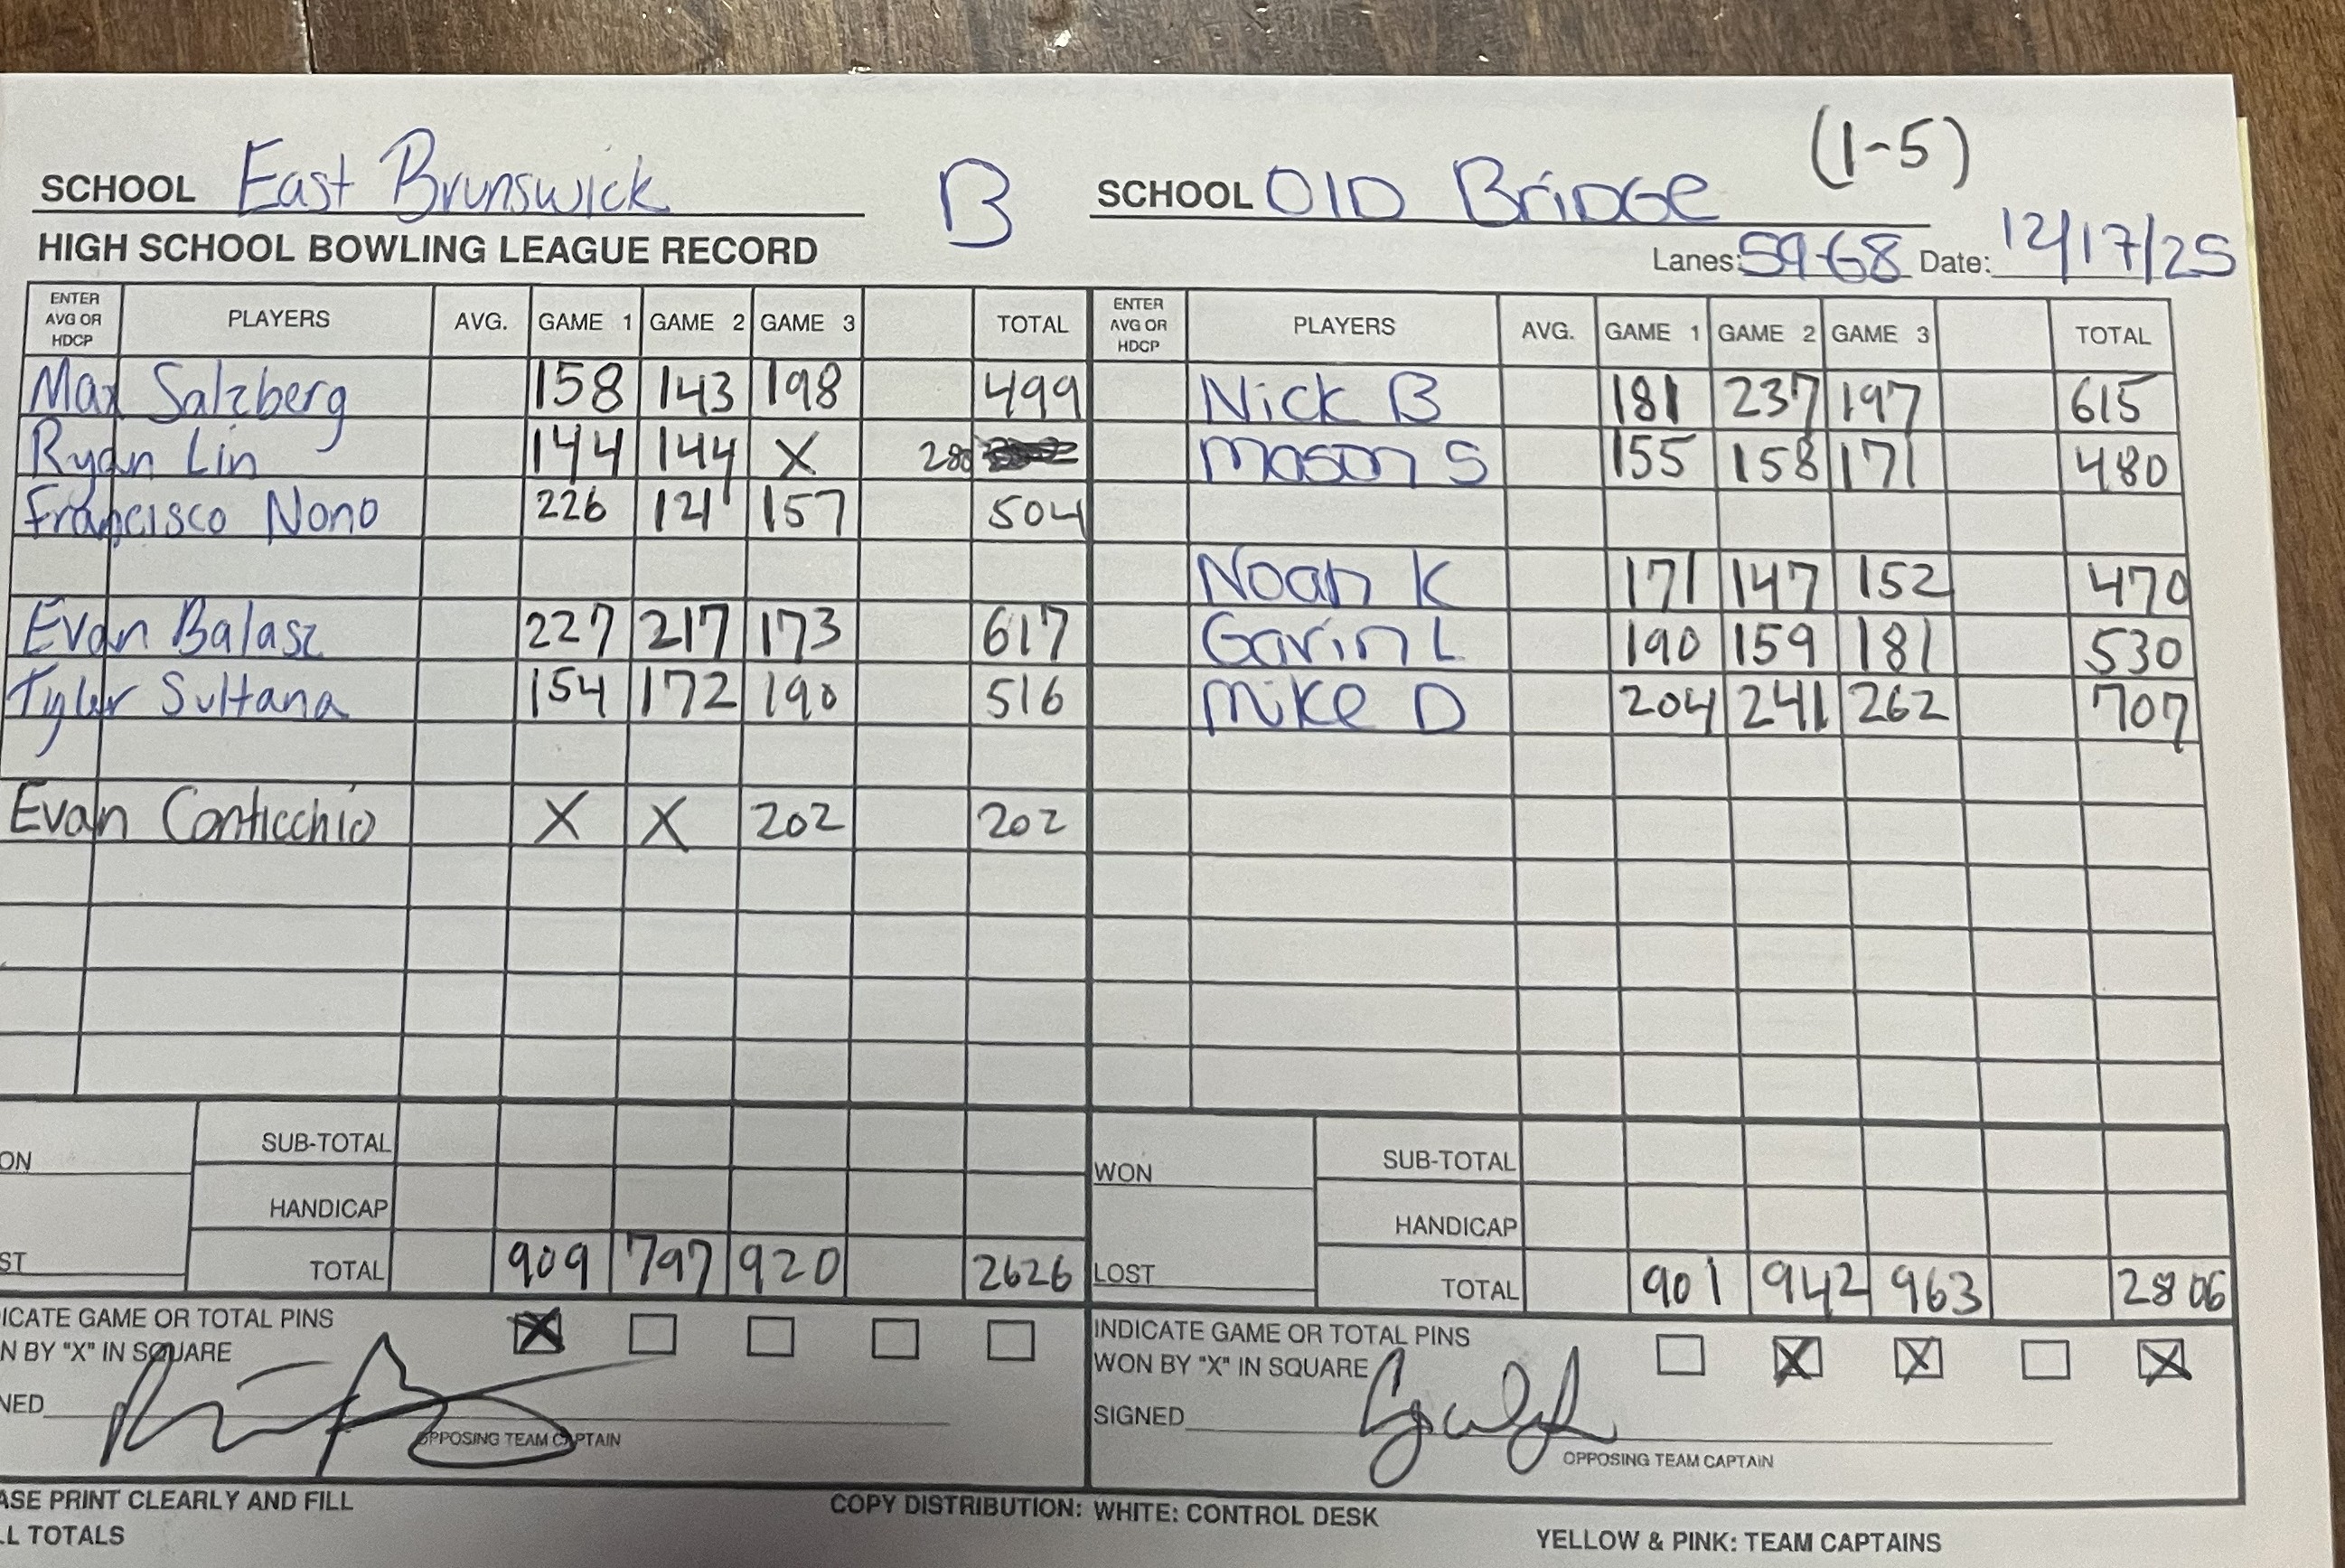 (1-5)
SCHOOL East Brunswick B SCHOOL OlD BriDGe
HIGH SCHOOL BOWLING LEAGUE RECORD Lanes: 59-68 Date: 12/17/25
ENTER AVG OR HDCP PLAYERS AVG. GAME 1 GAME 2 GAME 3 TOTAL ENTER AVG OR HDCP PLAYERS AVG. GAME 1 GAME 2 GAME 3 TOTAL
Max Salzberg 158 143 198 499 Nick B 181 237 197 615
Ryan Lin 144 144 X 288 Mason S 155 158 171 480
Francisco Nono 226 121 157 504
Noah K 171 147 152 470
Evan Balasz 227 217 173 617 Gavin L 190 159 181 530
Tyler Sultana 154 172 190 516 Mike D 204 241 262 707
Evan Conticchio X X 202 202
SUB-TOTAL SUB-TOTAL
ON WON
HANDICAP HANDICAP
ST TOTAL 909 797 920 2626 LOST TOTAL 901 942 963 2806
DICATE GAME OR TOTAL PINS INDICATE GAME OR TOTAL PINS
N BY "X" IN SQUARE X WON BY "X" IN SQUARE X X X
NED SIGNED
OPPOSING TEAM CAPTAIN OPPOSING TEAM CAPTAIN
ASE PRINT CLEARLY AND FILL COPY DISTRIBUTION: WHITE: CONTROL DESK
LL TOTALS YELLOW & PINK: TEAM CAPTAINS